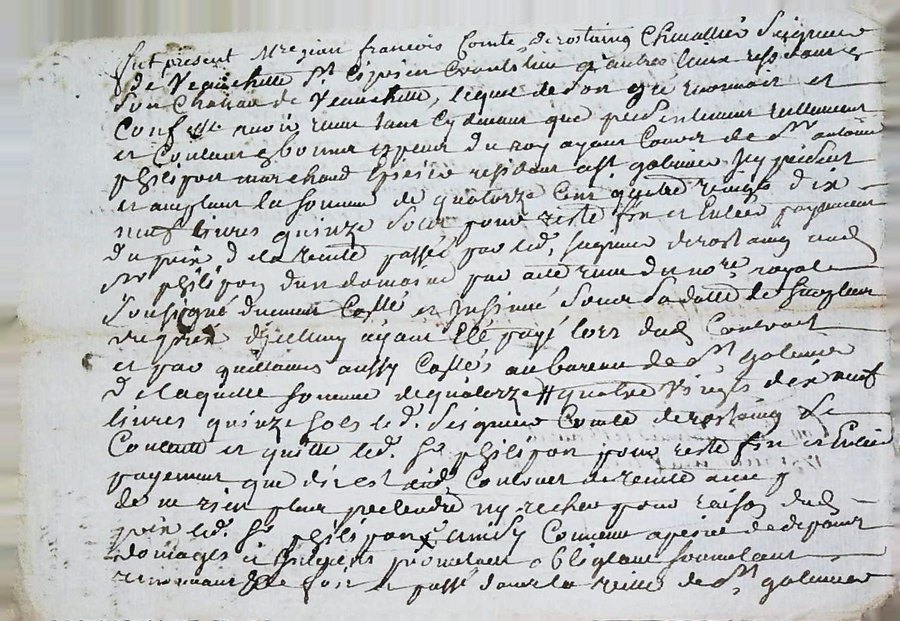 fut present Mre jean francois Comte de rostaing Chevallier Seigneur
de Veauchette St Ciprien et autres lieux residant en
Son Chateau de Veauchette, lequel de son gré reconnoit et
Confesse avoir receu tant cy devant que presentement reellement
et Contant en bonnes espesses du roy ayant Cours de Sr antoine
philipon marchand resident a St galmier Icy present
et acceptant la somme de quatorze Cent quatre vingts dix
neuf livres quinze Sols pour reste fin et Entier payement
du prix de la vente passée par led. Seigneur de rostaing aud.
Sr philipon d'un domaine par acte receu du nore royal
Soussigné duement Collé et Insinué Sous Sa datte le Surplus
du prix d'jcelluy ayant Eté payé lors dud. Contract
et par quittances aussy Collés au bureau de St galmier
de laquelle somme de quatorze Ct quatre Vingts dix neuf
livres quinze sols led. Seigneur Comte de rostaing Se
Contente et quitte led. Sr philipon pour reste fin et Entier
payement que dit est dud. Contract de vente avec
de ne rien plus pretendre ny rechercher pour raison dud.
prix led. Sr philipon Convenu a peine de tous
domages et Interets promettant obligeant Soumettant
renonceant fait et passé dans la ville de St galmier